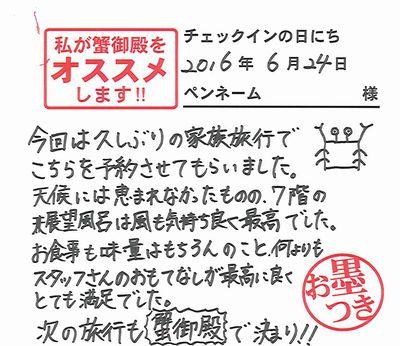 私が蟹御殿を
オススメ
します!!
チェックインの日にち
2016年 6月 24日
ペンネーム 様
今回は久しぶりの家族旅行で
こちらを予約させてもらいました。
天候には恵まれなかったものの、7階の
展望風呂は風も気持ち良く最高でした。
お食事も味量はもちろんのこと、何よりも
スタッフさんのおもてなしが最高に良く
とても満足でした。
お墨
つき
次の旅行も蟹御殿で決まり!!